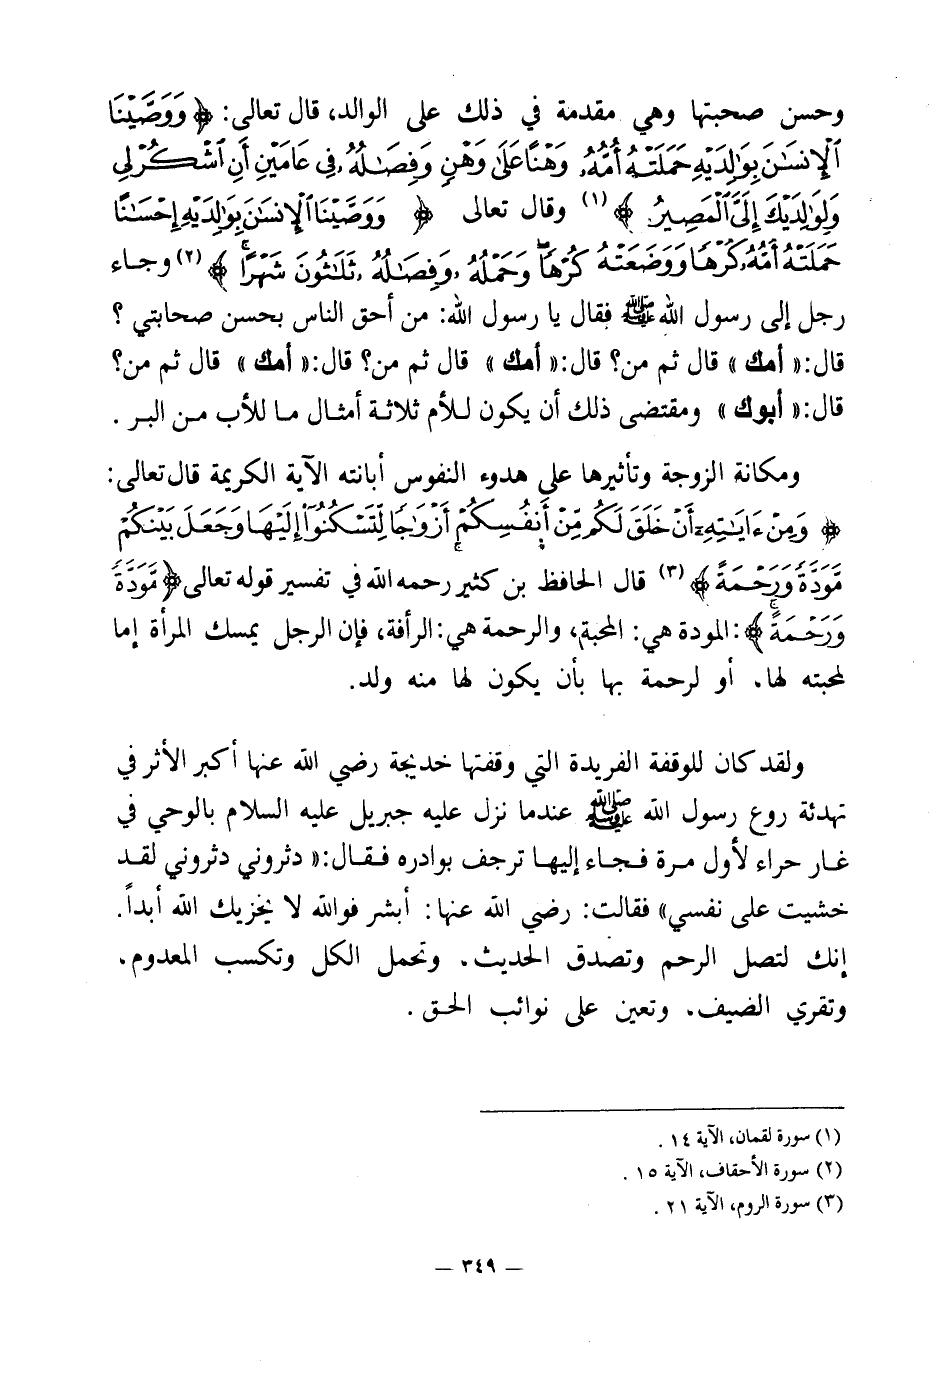 وحسن صحبتها وهي مقدمة في ذلك على الوالد، قال تعالى: ﴿ وَوَصَّيْنَا
ٱلْإِنسَٰنَ بِوَٰلِدَيْهِ حَمَلَتْهُ أُمُّهُۥ وَهْنًا عَلَىٰ وَهْنٍ وَفِصَٰلُهُۥ فِى عَامَيْنِ أَنِ ٱشْكُرْ لِى
وَلِوَٰلِدَيْكَ إِلَىَّ ٱلْمَصِيرُ ﴾ (١) وقال تعالى ﴿ وَوَصَّيْنَا ٱلْإِنسَٰنَ بِوَٰلِدَيْهِ إِحْسَٰنًا
حَمَلَتْهُ أُمُّهُۥ كُرْهًا وَوَضَعَتْهُ كُرْهًا ۖ وَحَمْلُهُۥ وَفِصَٰلُهُۥ ثَلَٰثُونَ شَهْرًا ۚ ﴾ (٢) وجاء
رجل إلى رسول الله ﷺ فقال يا رسول الله: من أحق الناس بحسن صحابتي ؟
قال:« أمك » قال ثم من؟ قال:« أمك » قال ثم من؟ قال:« أمك » قال ثم من؟
قال:« أبوك » ومقتضى ذلك أن يكون للأم ثلاثة أمثال ما للأب من البر .
ومكانة الزوجة وتأثيرها على هدوء النفوس أبانته الآية الكريمة قال تعالى:
﴿ وَمِنْ ءَايَٰتِهِۦٓ أَنْ خَلَقَ لَكُم مِّنْ أَنفُسِكُمْ أَزْوَٰجًا لِّتَسْكُنُوٓا۟ إِلَيْهَا وَجَعَلَ بَيْنَكُم
مَّوَدَّةً وَرَحْمَةً ﴾ (٣) قال الحافظ بن كثير رحمه الله في تفسير قوله تعالى ﴿ مَّوَدَّةً
وَرَحْمَةً ۚ ﴾: المودة هي: المحبة، والرحمة هي: الرأفة، فإن الرجل يمسك المرأة إما
لمحبته لها. أو لرحمة بها بأن يكون لها منه ولد.
ولقد كان للوقفة الفريدة التي وقفتها خديجة رضي الله عنها أكبر الأثر في
تهدئة روع رسول الله ﷺ عندما نزل عليه جبريل عليه السلام بالوحي في
غار حراء لأول مرة فجاء إليها ترجف بوادره فقال:« دثروني دثروني لقد
خشيت على نفسي» فقالت: رضي الله عنها: أبشر فوالله لا يخزيك الله أبداً.
إنك لتصل الرحم وتصدق الحديث. وتحمل الكل وتكسب المعدوم.
وتقري الضيف. وتعين على نوائب الحق .
(١) سورة لقمان، الآية ١٤ .
(٢) سورة الأحقاف، الآية ١٥ .
(٣) سورة الروم، الآية ٢١ .
— ٣٤٩ —